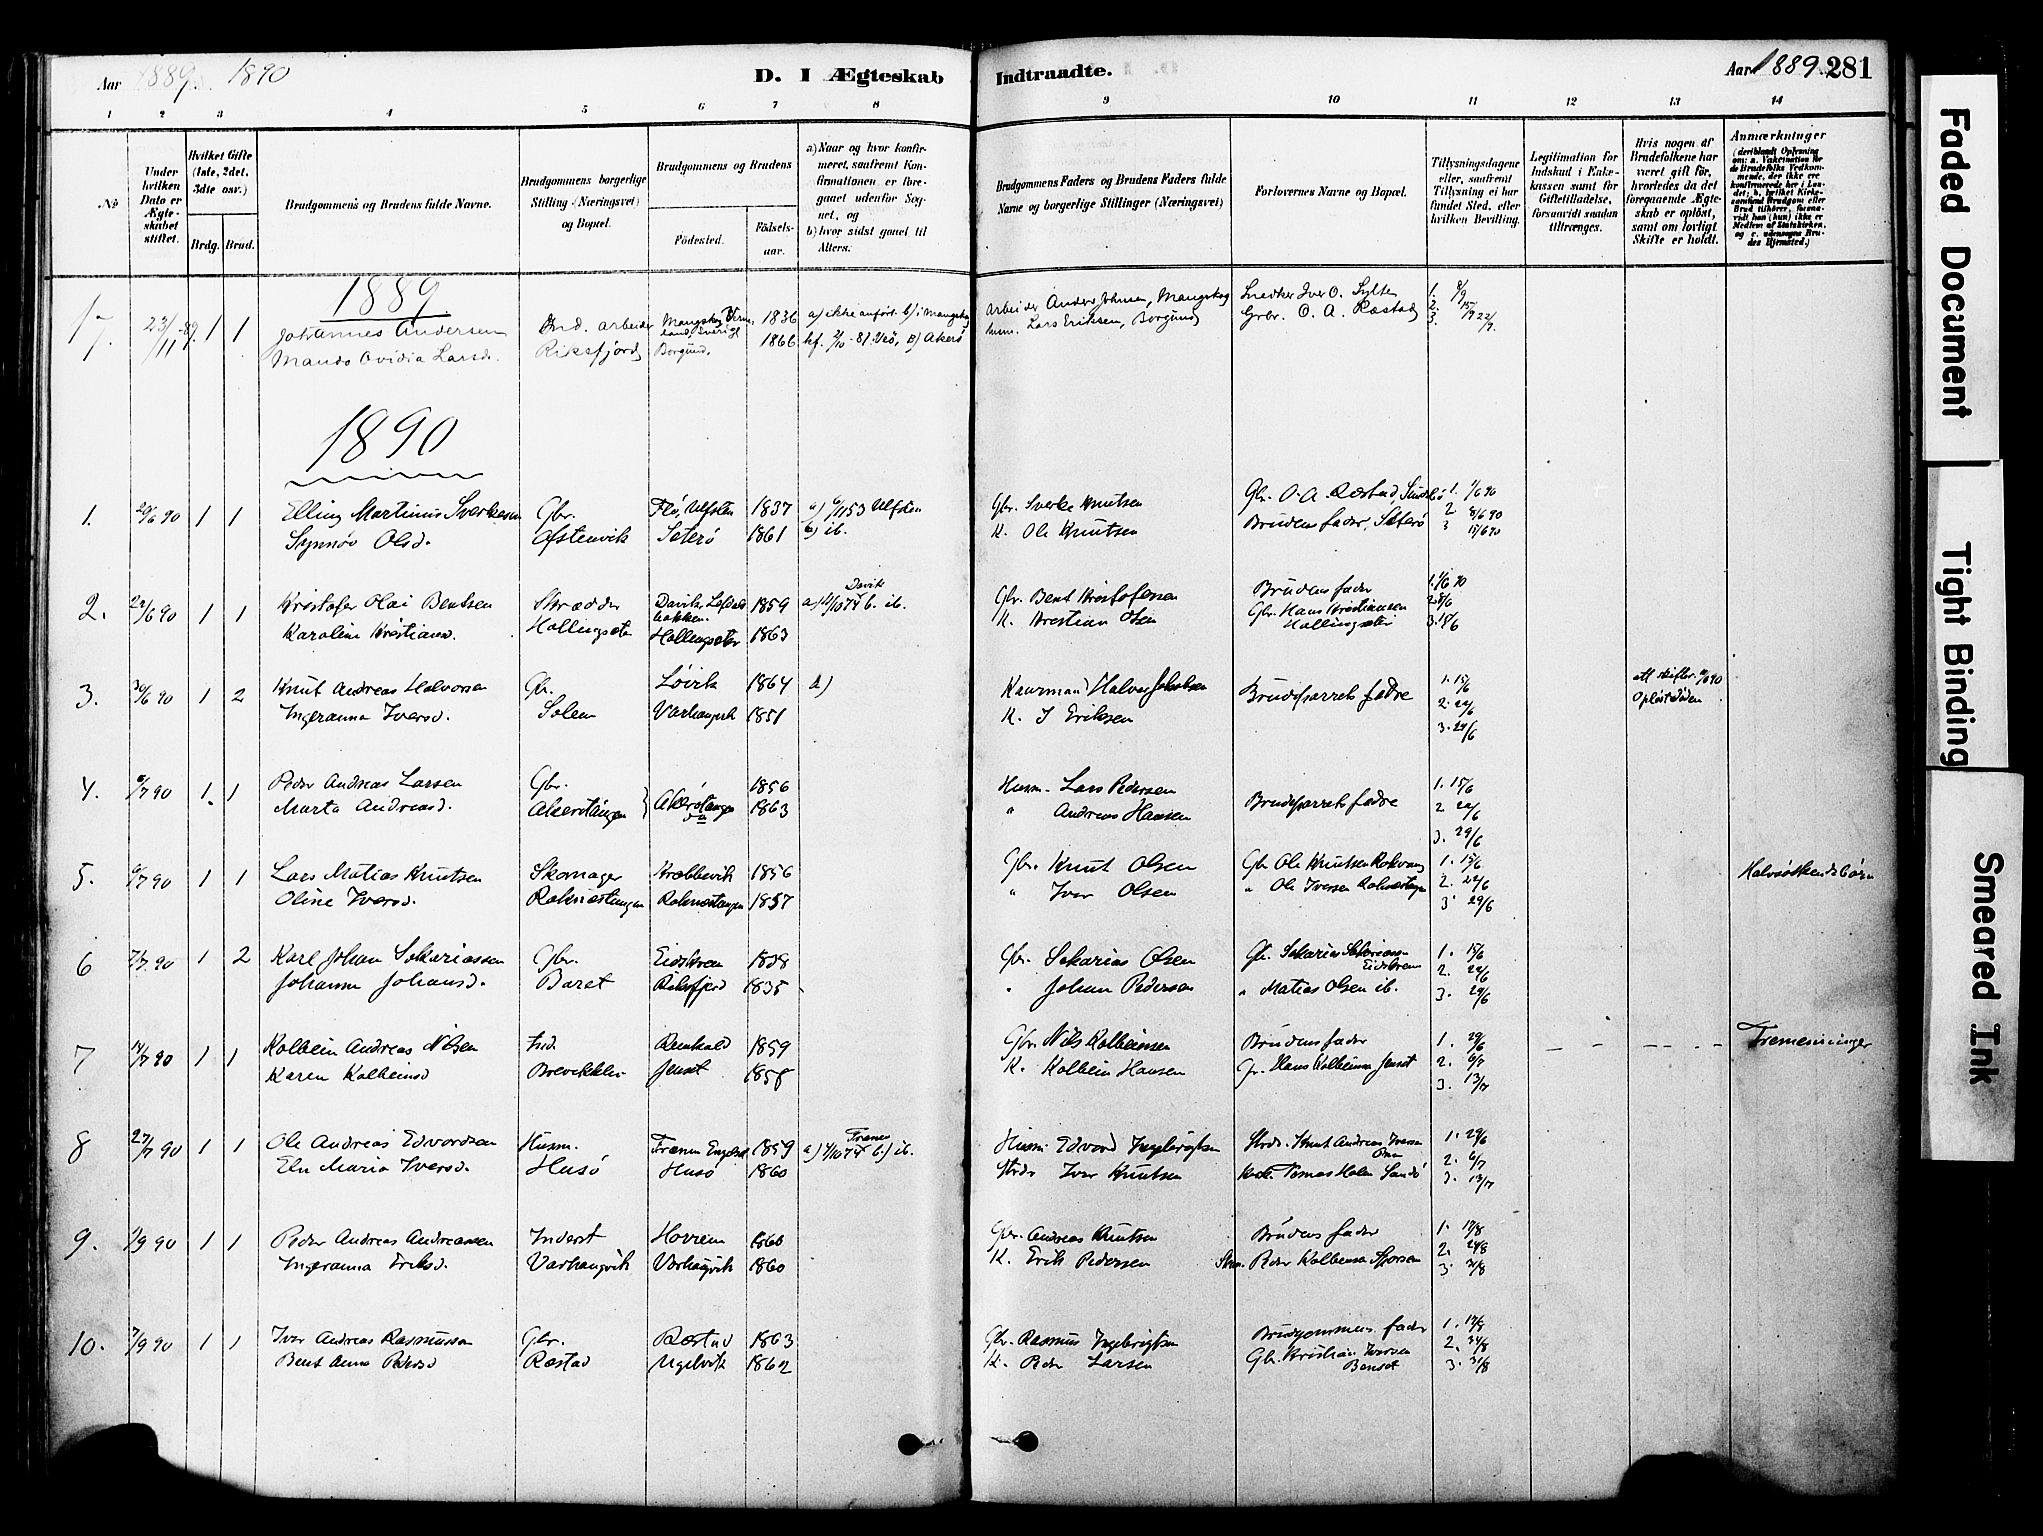 Aar 1889. 1890
D. I Ægteskab
Indtraadte.
Aar 1889. 281
1 2 3 4 5 6 7 8 9 10 11 12 13 14
No
Under hvilken Dato er Ægteskabet stiftet.
Hvilket Gifte (1ste, 2det, 3die osv.)
Brdg. Brud.
Brudgommens og Brudens fulde Navne.
Brudgommens borgerlige Stilling (Næringsvei) og Bopæl.
Brudgommens og Brudens
Födested.
Födselsaar.
a) Naar og hvor konfirmeret, saafremt Konfirmationen er foregaaet udenfor Sognet, og
b) hvor sidst gaaet til Alters.
Brudgommens Faders og Brudens Faders fulde Navne og borgerlige Stillinger (Næringsvei)
Forlovernes Navne og Bopæl.
Tillysningsdagene eller, saafremt Tillysning ei har fundet Sted, efter hvilken Bevilling.
Legitimation for Indskud i Enkekassen samt for Giftetilladelse, forsaavidt saadan tiltrænges.
Hvis nogen af Brudefolkene har været gift før, hvorledes da det foregaaende Ægteskab er opløst, samt om lovligt Skifte er holdt.
Anmærkninger
1889
23/11-89. 1 1 Johannes Andersen Ind. arbeider 1836 a) ikke anført b) i Mangskog Arbeider Anders Johnsen, Mangskog Snedker Iver O. Sylte 1. 8/9
Larsd. Riksfjord Borgund. 1866 Husm. Lars Eriksen, Borgund Grbr. O. A. Ræstad 2. 15/9 3. 22/9.
1890
1. 20/6 90 1 1 Elling Martinus Sverkesen Gbr. 1837 Gbr. Sverke Knutsen Gbr. O. A. Ræstad, 1. 1/6 90
Synnøv Olsd. Seterø 1861 b) ib. K. Ole Knutsen Brudens fader, Seterø 2 8/6 90 3 15/6 90
2. 22/6 90 1 1 Kristofer Olai Bentsen Skrædder 1859 Davik b. ib. Gbr. Bent Kristofersen Brudens fader 1. 1/6 90
Karoline Kristiansd. Hollingseter Hollingseter 1863 K. Kristian Olsen Gbr. Hans Kristiansen Hollingseter 2. 8/6 3. 15/6
3. 30/6 90 1 2 Knut Andreas Halvorsen Gbr. Løvik 1864 a) Halvor Jakobsen Brudeparrets fædre 1. 15/6
Ingeranna Iversd. Solem Varhaugvik 1851 K. I Eriksen 2. 22/6 3. 29/6
4. 6/7 90 1 1 Peder Andreas Larsen Gbr. 1856 Husm. Lars Pedersen Brudeparrets fædre 1. 15/6
Marta Andreasd. Akerøtangen Akerøtangen 1863 " Andreas Hansen 2 22/6 3. 29/6
5. 6/7 90 1 1 Lars Matias Knutsen Skomager Kræbbevik 1856 Gbr. Knut Olsen Gbr Ole Knutsen 1. 15/6 Halvsøskendebørn
Oline Iversd. Raknestangen Raknestangen 1857 " Iver Olsen " Ole Iversen Raknestangen 2. 22/6 3. 29/6
6 90 1 2 Karl Johan Sakariassen Gbr. Eidskrem 1838 Gbr. Sakarias Olsen Gbr. Sakarias Sakariassen Eidskrem 1. 15/6
Johanna Johansd. Baret Riksfjord 1835 " Johan Pedersen " Matias Olsen ib. 2. 22/6 3. 29/6
7 14/7 90 1 1 Kolbein Andreas Nilsen Ind. 1859 Gbr. Nils Kolbeinsen Brudens fader 1. 29/6 Tremenninger
Karen Kolbeinsd Jenset 1858 K. Kolbein Hansen Hans Kolbeinsen Jenset 2. 6/7 3. 13/7
8 27/7 90 1 1 Ole Andreas Edvardsen Husm. 1859 Frænen b.) ib. Husm Edvard Ingebrigtsen Knut Andreas Iversen 1. 29/6
Eln Maria Iversd. Husø Husø 1860 Iver Knutsen Tomas Holm Sandø 2. 6/7 3. 13/7
9. 1/9 90 1 1 Peder Andreas Andreassen Inderst Hovrem 1866 Gbr. Andreas Knutsen Brudens fader 1. 17/8
Ingeranna Eriksd. Varhaugvik Varhaugvik 1860 K. Erik Pedersen Peder Kolbensen 2. 24/8 3. 31/8
10. 7/9 90 1 1 Iver Andreas Rasmussen Gbr. Ræstad 1863 Gbr. Rasmus Ingebrigtsen Brudgommens fader 1. 17/8
Bent Anna Pedersd Ræstad Ugelvik 1862 K. Peder Larsen Gbr. Kristian Iversen 2. 24/8 3. 31/8
Faded Document
Tight Binding
Smeared Ink